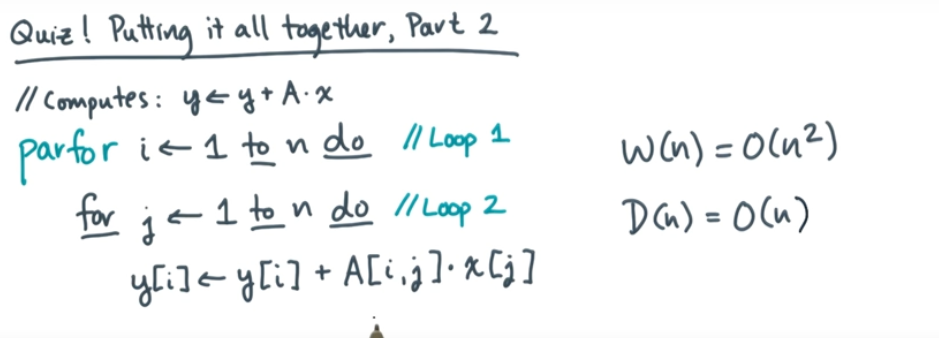 Quiz! Putting it all together, Part 2
// Computes: y ← y + A·x
parfor i ← 1 to n do // Loop 1
for j ← 1 to n do // Loop 2
y[i] ← y[i] + A[i,j]·x[j]
W(n) = O(n²)
D(n) = O(n)